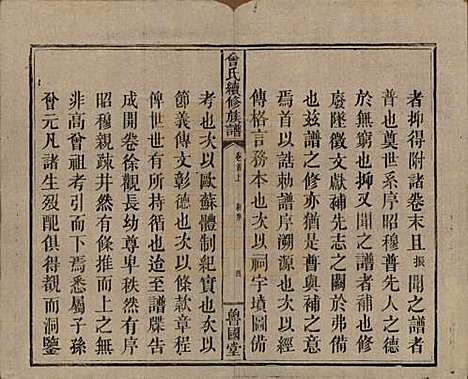 者抑得附諸卷末且振聞之譜者
普也奠世系序昭穆普先人之德
於無窮也抑又聞之譜者補也修
廢墜徵文獻補先志之闕於弗備
也茲譜之修亦猶是普與補之意
焉首以誥敕譜序溯源也次以經
傳格言務本也次以祠宇墳圖備
曾氏續修族譜
卷首上
四
魯國堂
考也次以歐蘇體制紀實也次以
節義傳文彰德也次以條款章程
俾世世有所恪遵迨至譜牒告
成開卷徐觀長幼尊卑秩然有序
昭穆親疎井然有條推而上下焉
非高曾祖考下焉悉屬子孫
曾元凡諸生烈配俱得覩而洞鑒